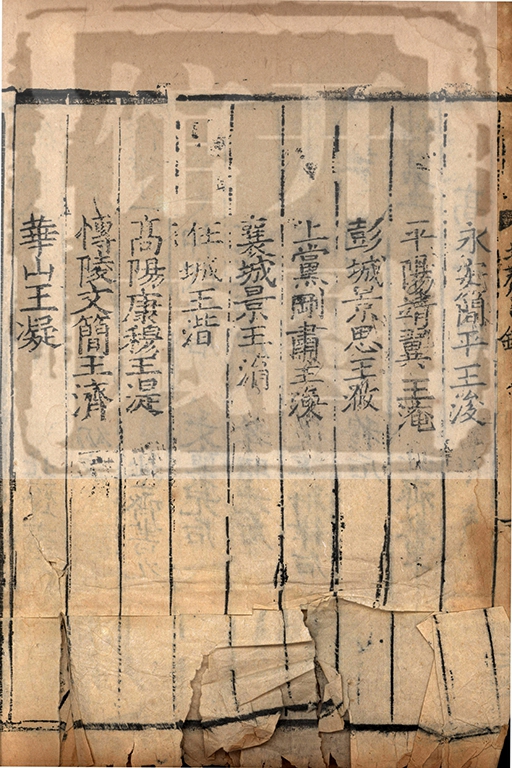 永安簡平王浚
平陽靖翼王淹
彭城景思王浟
上黨剛肅王渙
襄城景王淯
任城王湝
高陽康穆王湜
愽陵文簡王濟
華山王凝